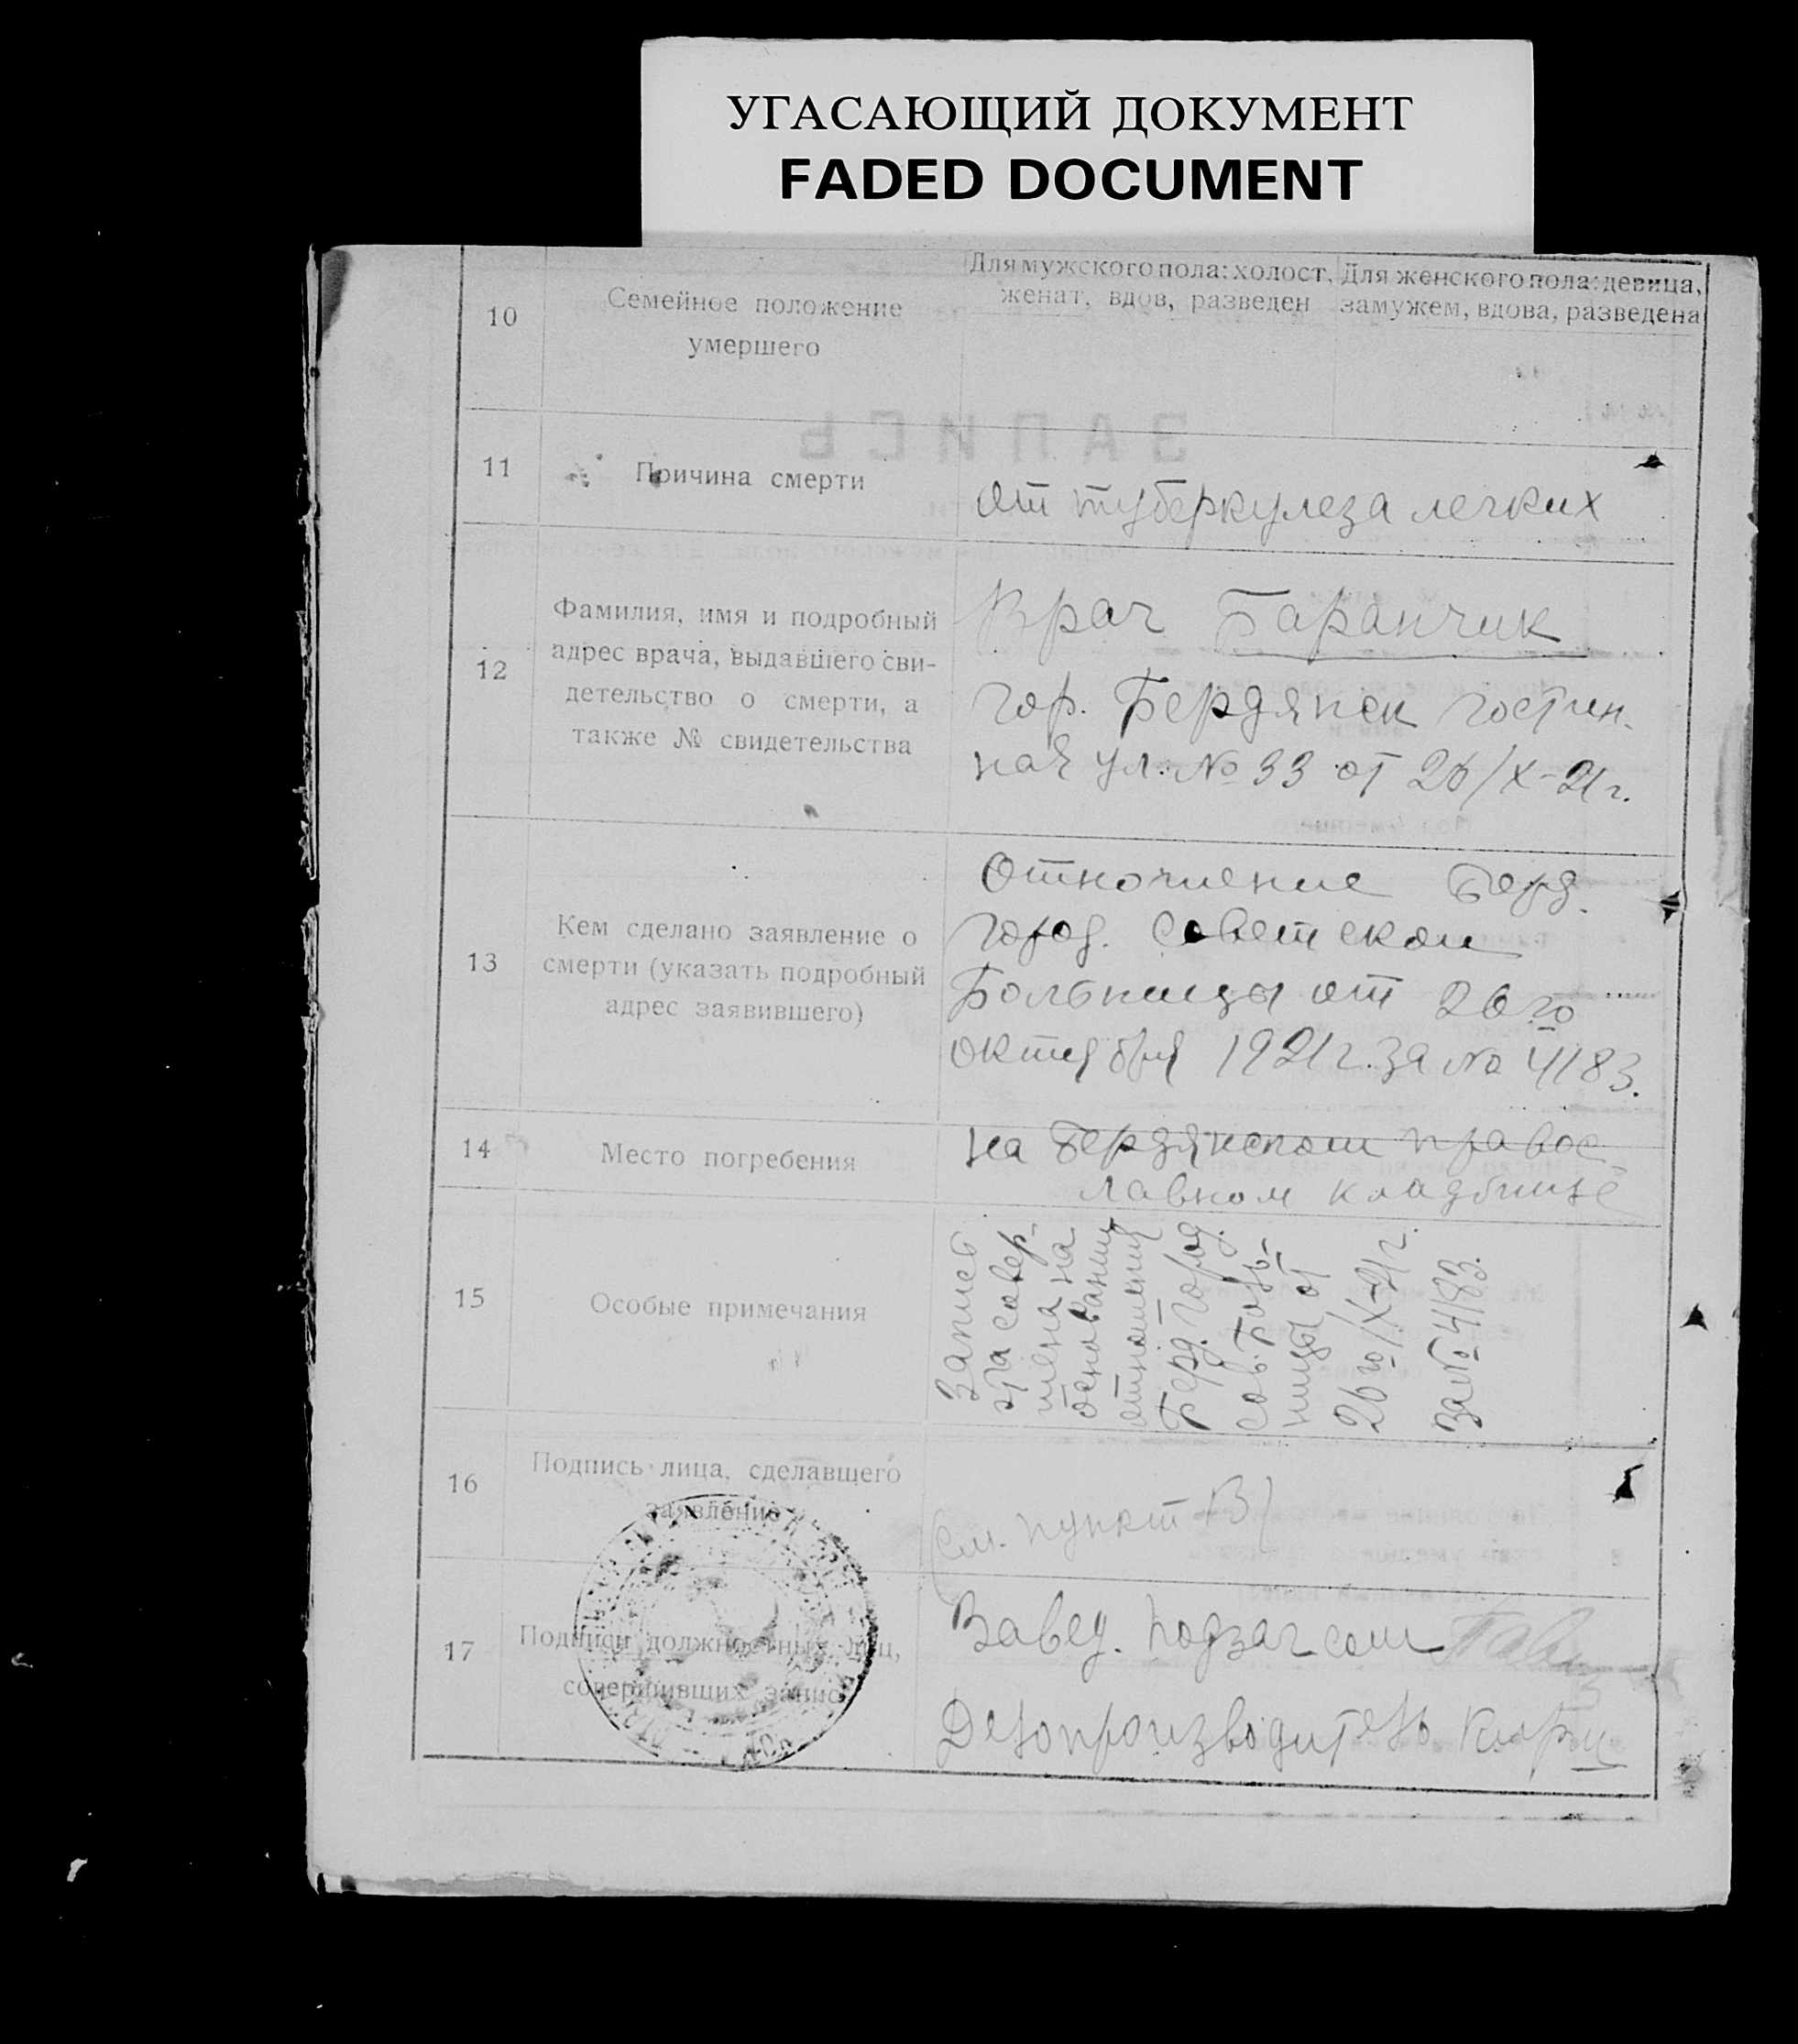 УГАСАЮЩИЙ ДОКУМЕНТ
FADED DOCUMENT
10
Семейное положение
умершего
Для мужского пола: холост,
женат, вдов, разведен
Для женского пола: девица,
замужем, вдова, разведена
ЗАПИСЬ
11
Причина смерти
от туберкулеза легких
12
Фамилия, имя и подробный
адрес врача, выдавшего сви-
детельство о смерти, а
также № свидетельства
Врач Баранчик
гор. Бердянск гостин.
ная ул. № 33 от 26/X-21 г.
13
Кем сделано заявление о
смерти (указать подробный
адрес заявившего)
Отношение Берд.
город. Советской
Больницы от 26го
октября 1921 г. за № 4183.
14
Место погребения
на Бердянском правос-
лавном кладбище
15
Особые примечания
Запись
эта совер-
шена на
основании
отношения
Берд. город.
Сов. Боль-
ницы от
26го/X-21 г.
за № 4183.
16
Подпись лица, сделавшего
заявление
(См. пункт 13)
17
Подписи должностных лиц,
совершивших запись
Завед. подзагсом
Делопроизводитель